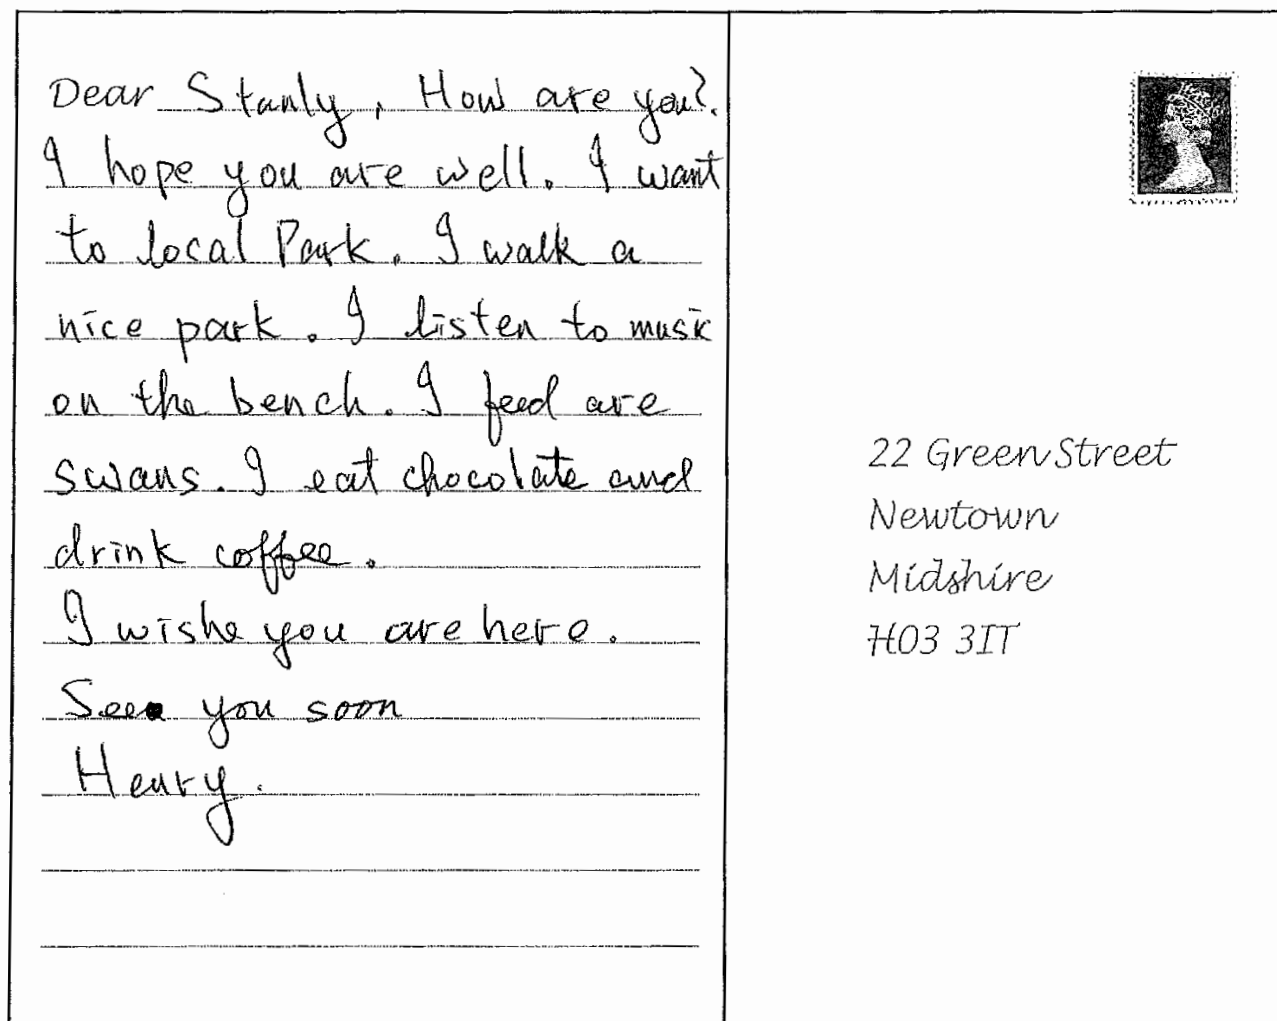 Dear Stanly, How are you?.
I hope you are well. I want
to local Park. I walk a
nice park. I listen to music
on the bench. I feed are
swans. I eat chocolate and
drink coffee.
I wishe you are here.
See you soon
Henry.
22 Green Street
Newtown
Midshire
HO3 3IT